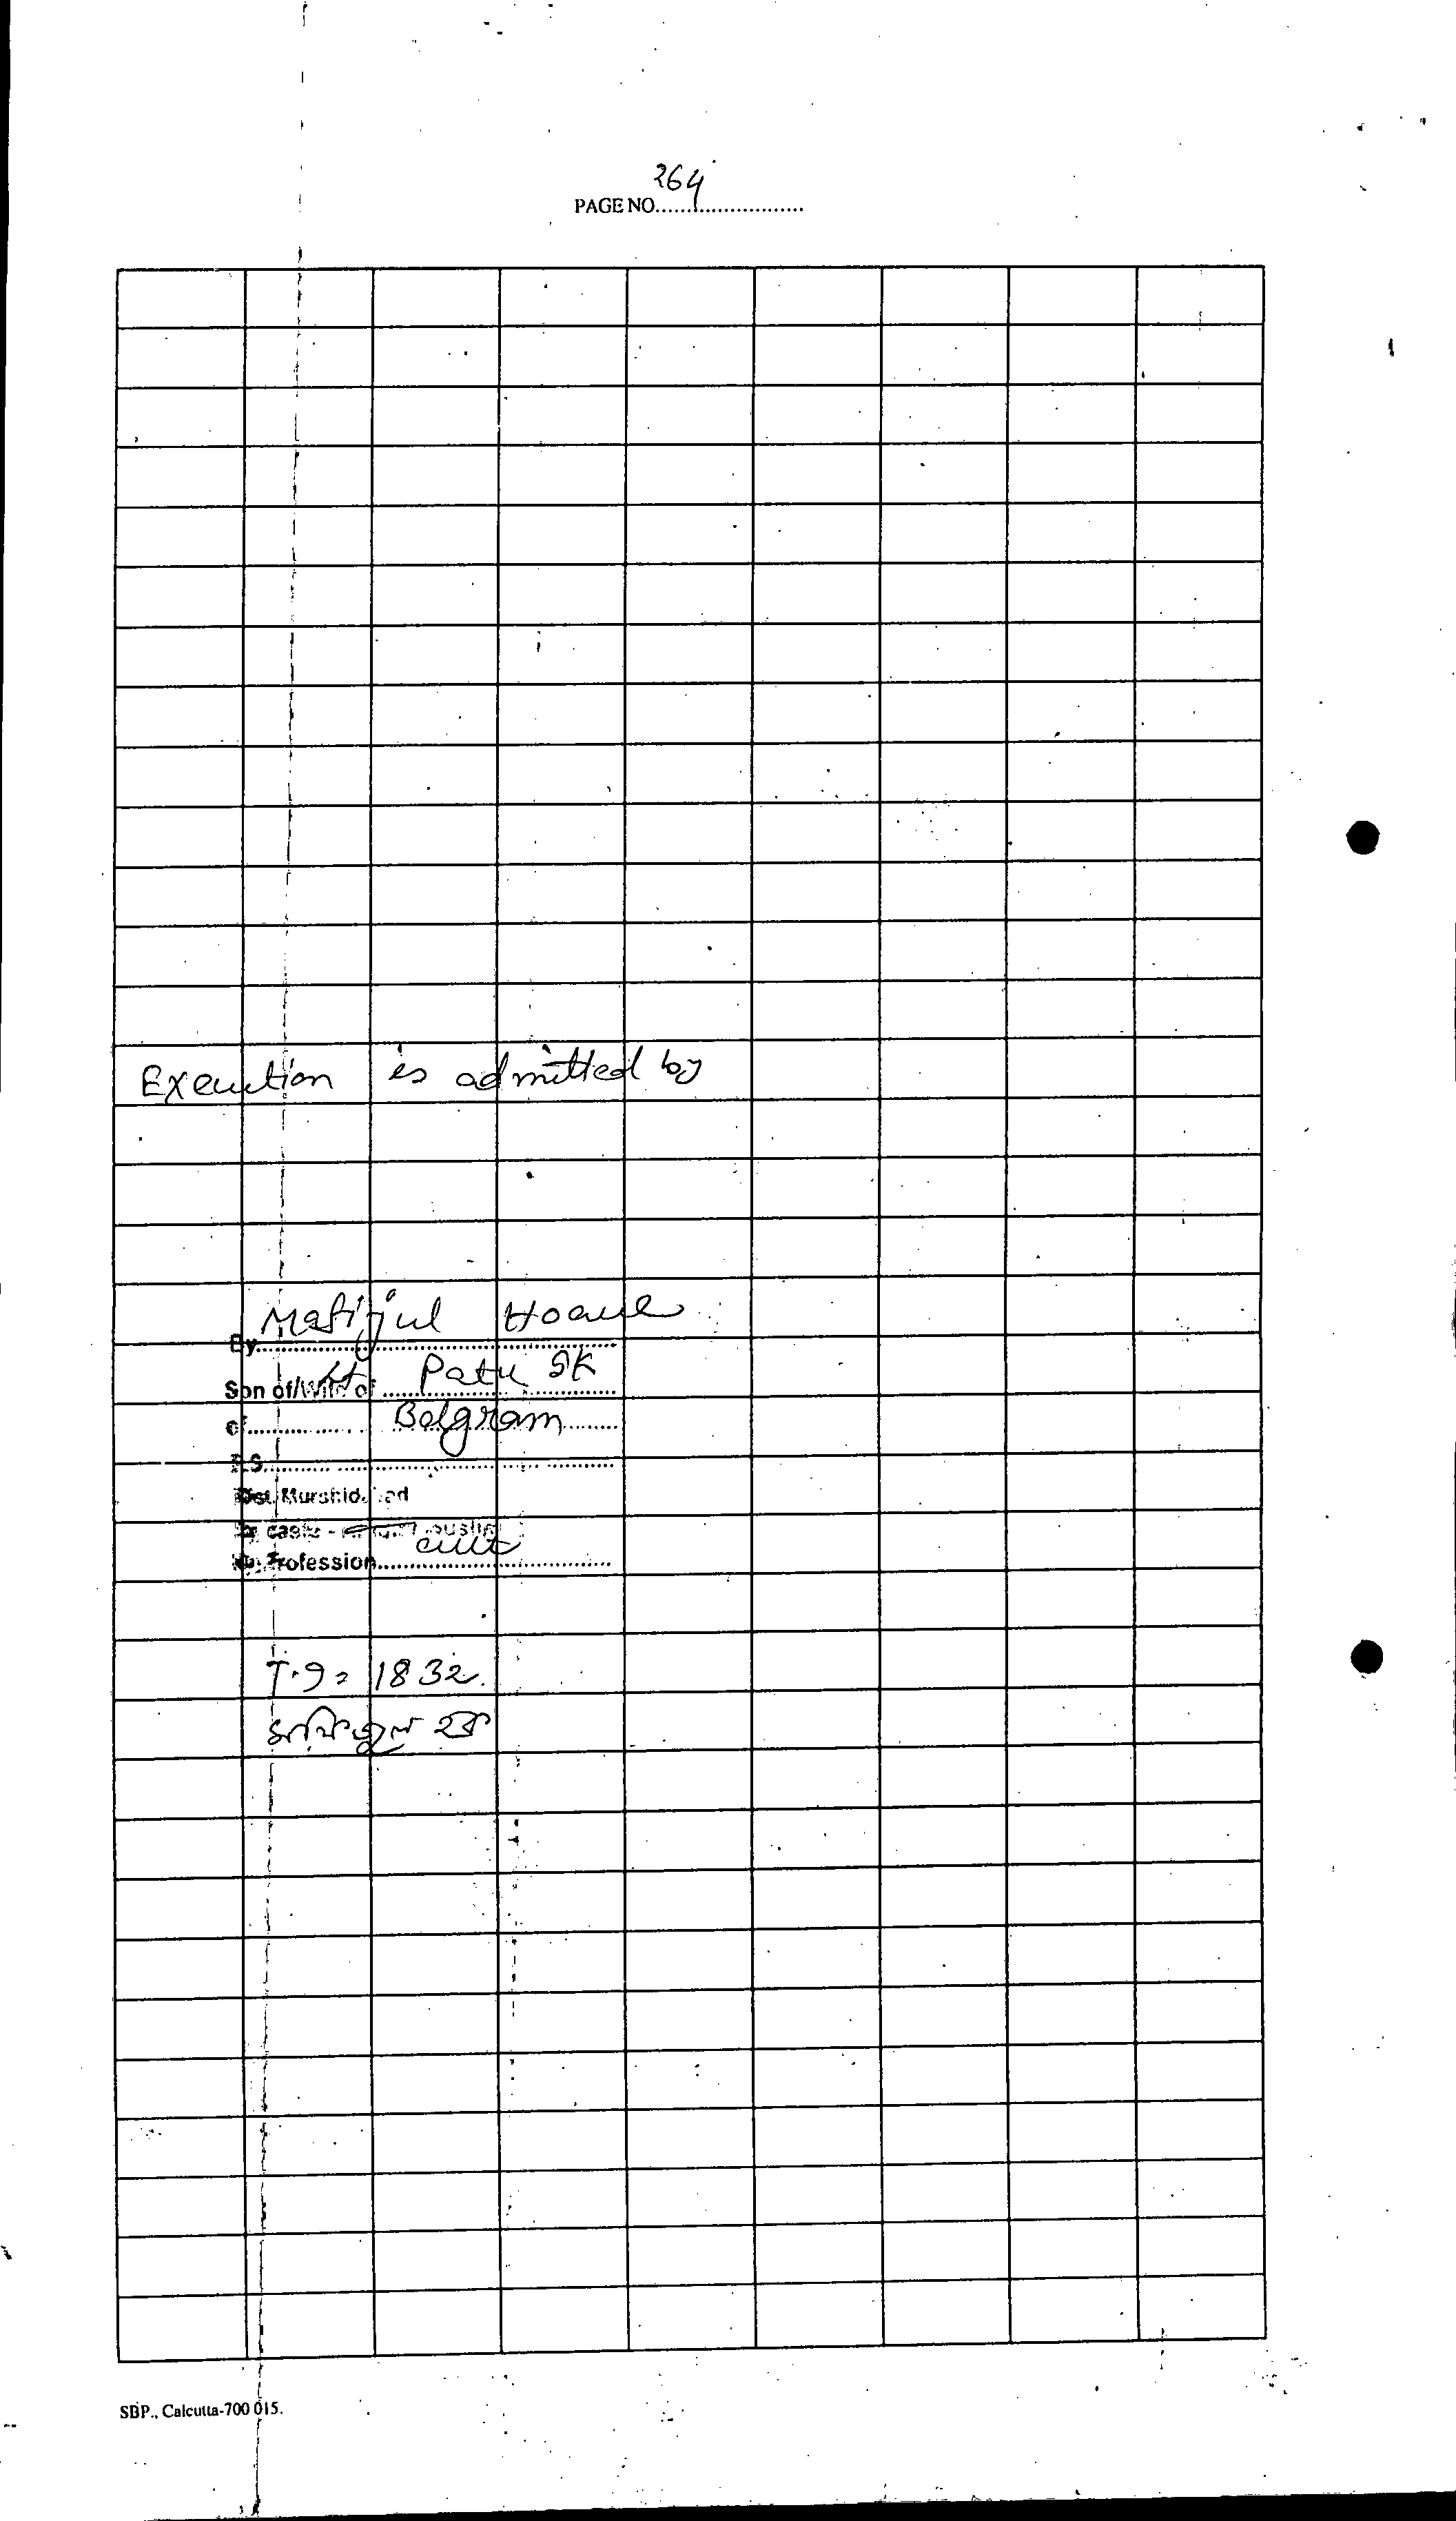 264
PAGE NO........................
Execution is admitted by
By Mafijul Hoque
Son of/Wife of Lt Patu SK
of Belgram
P.S.
Dist. Murshidabad
By caste - Muslim
By Profession cult
T.9 = 1832.
মাফিজুল হক
SBP., Calcutta-700 015.